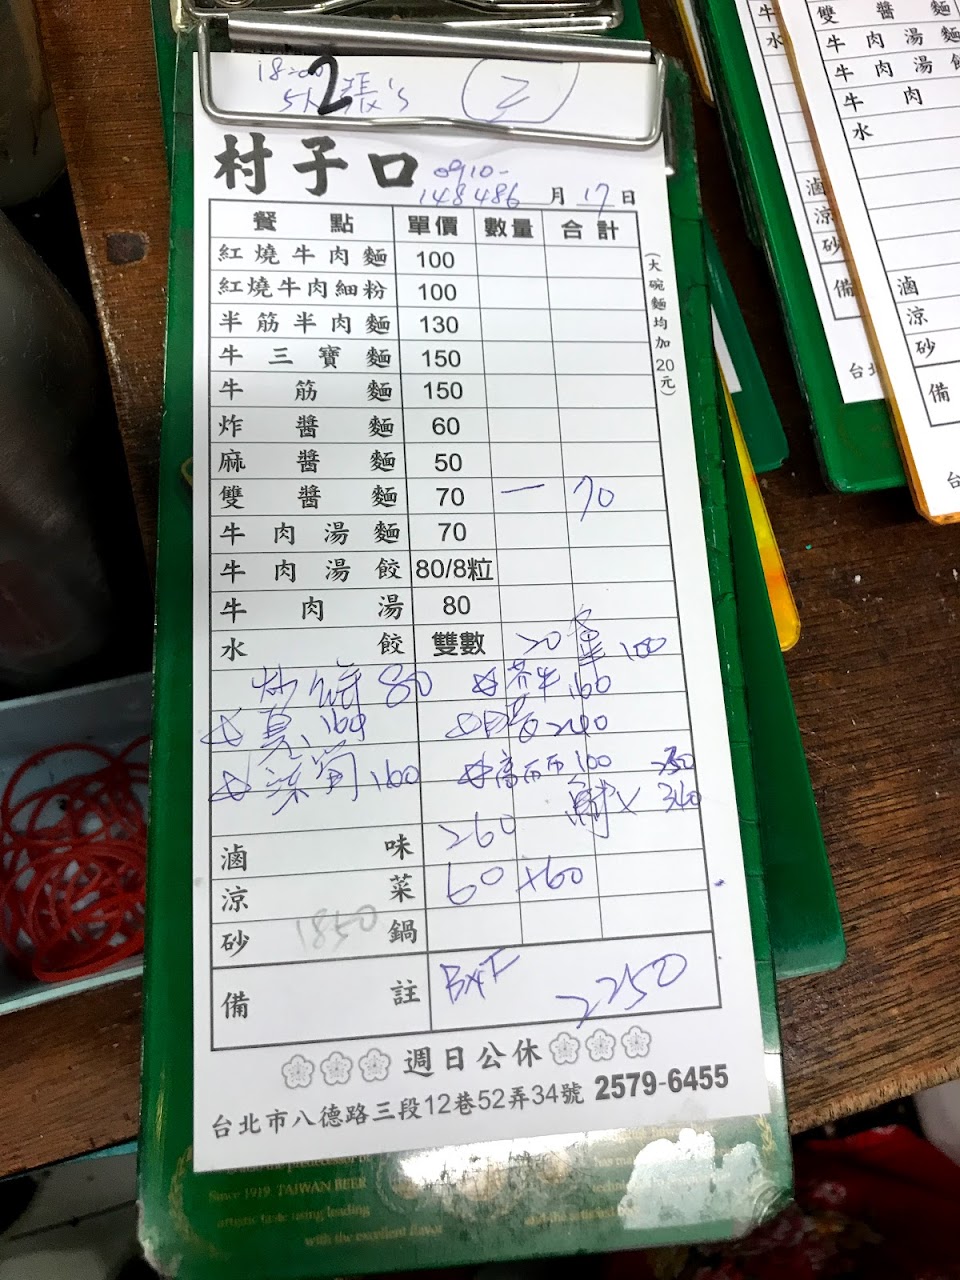 18:00
2
5人 張's
村子口
0910-
148486 月 17 日
餐點 單價 數量 合計
紅燒牛肉麵 100
紅燒牛肉細粉 100
半筋半肉麵 130
牛三寶麵 150
牛筋麵 150
炸醬麵 60
麻醬麵 50
雙醬麵 70 一 70
牛肉湯麵 70
牛肉湯餃 80/8粒
牛肉湯 80
水餃 雙數 20 100
炒餅 80 芥牛 160
160 240
160 高麗 100 250
340
滷味 260
涼菜 60 +60
砂鍋 1850
備註 2250
(大碗麵均加20元)
週日公休
台北市八德路三段12巷52弄34號 2579-6455
Since 1919 TAIWAN BEER
artistic taste using leading
with the excellent flavor
雙醬麵
牛肉湯麵
牛肉湯餃
牛肉
水
滷
涼
砂
備
台北
牛
水
滷
涼
砂
備
台